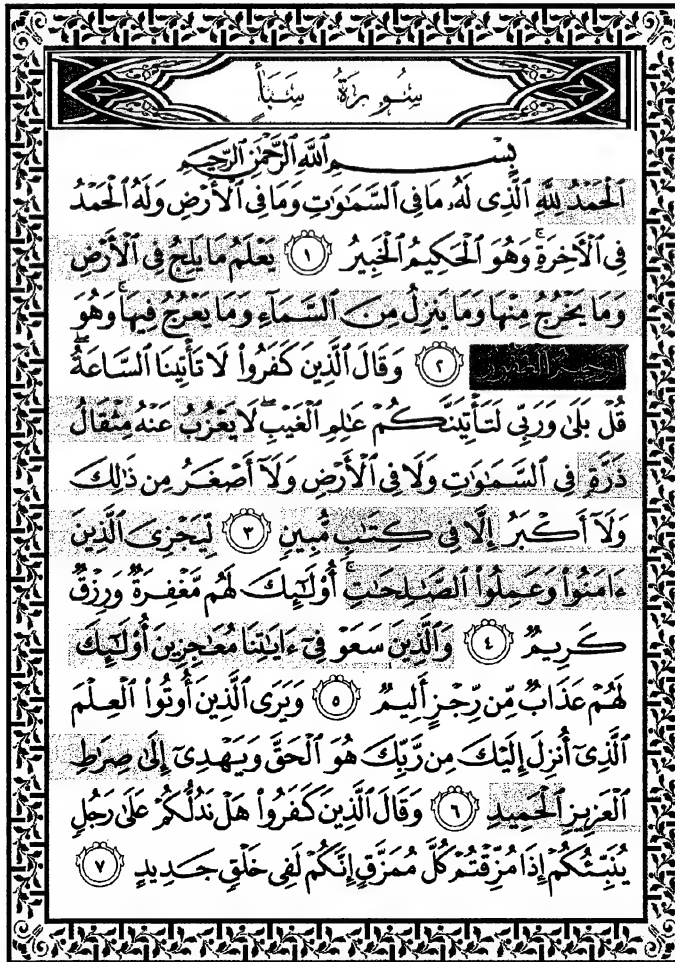 سُورَةُ سَبَأٍ
بِسْمِ ٱللَّهِ ٱلرَّحْمَٰنِ ٱلرَّحِيمِ
ٱلْحَمْدُ لِلَّهِ ٱلَّذِى لَهُۥ مَا فِى ٱلسَّمَٰوَٰتِ وَمَا فِى ٱلْأَرْضِ وَلَهُ ٱلْحَمْدُ
فِى ٱلْأَخِرَةِ ۚ وَهُوَ ٱلْحَكِيمُ ٱلْخَبِيرُ ١ يَعْلَمُ مَا يَلِجُ فِى ٱلْأَرْضِ
وَمَا يَخْرُجُ مِنْهَا وَمَا يَنزِلُ مِنَ ٱلسَّمَآءِ وَمَا يَعْرُجُ فِيهَا ۚ وَهُوَ
ٱلرَّحِيمُ ٱلْغَفُورُ ٢ وَقَالَ ٱلَّذِينَ كَفَرُوا۟ لَا تَأْتِينَا ٱلسَّاعَةُ ۖ
قُلْ بَلَىٰ وَرَبِّى لَتَأْتِيَنَّكُمْ عَٰلِمِ ٱلْغَيْبِ ۖ لَا يَعْزُبُ عَنْهُ مِثْقَالُ
ذَرَّةٍ فِى ٱلسَّمَٰوَٰتِ وَلَا فِى ٱلْأَرْضِ وَلَآ أَصْغَرُ مِن ذَٰلِكَ
وَلَآ أَكْبَرُ إِلَّا فِى كِتَٰبٍ مُّبِينٍ ٣ لِّيَجْزِىَ ٱلَّذِينَ
ءَامَنُوا۟ وَعَمِلُوا۟ ٱلصَّٰلِحَٰتِ ۚ أُو۟لَٰٓئِكَ لَهُم مَّغْفِرَةٌ وَرِزْقٌ
كَرِيمٌ ٤ وَٱلَّذِينَ سَعَوْ فِىٓ ءَايَٰتِنَا مُعَٰجِزِينَ أُو۟لَٰٓئِكَ
لَهُمْ عَذَابٌ مِّن رِّجْزٍ أَلِيمٌ ٥ وَيَرَى ٱلَّذِينَ أُوتُوا۟ ٱلْعِلْمَ
ٱلَّذِىٓ أُنزِلَ إِلَيْكَ مِن رَّبِّكَ هُوَ ٱلْحَقَّ وَيَهْدِىٓ إِلَىٰ صِرَٰطِ
ٱلْعَزِيزِ ٱلْحَمِيدِ ٦ وَقَالَ ٱلَّذِينَ كَفَرُوا۟ هَلْ نَدُلُّكُمْ عَلَىٰ رَجُلٍ
يُنَبِّئُكُمْ إِذَا مُزِّقْتُمْ كُلَّ مُمَزَّقٍ إِنَّكُمْ لَفِى خَلْقٍ جَدِيدٍ ٧